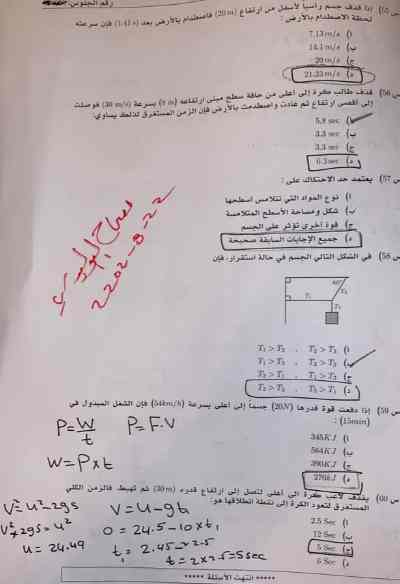 رقم الجلوس:
س 55) إذا قذف جسم رأسياً لأسفل من ارتفاع (20m) فاصطدام بالأرض بعد (1.41 s) فإن سرعته
لحظة الاصطدام بالأرض :
أ) 7.13 m/s
ب) 14.1 m/s
ج) 20 m/s
د) 21.23 m/s
س 56) قذف طالب كرة إلى أعلى من حافة سطح مبنى ارتفاعه (8 m) بسرعة (30 m/s) فوصلت
إلى أقصى ارتفاع ثم عادت واصطدمت بالأرض فإن الزمن المستغرق لذلك يساوي:
أ) 5.8 sec
ب) 3.3 sec
ج) 3.3 sec
د) 6.3 sec
س 57) يعتمد حد الاحتكاك على :
أ) نوع المواد التي تتلامس اسطحها
ب) شكل ومساحة الأسطح المتلامسة
ج) قوة أخرى تؤثر على الجسم
د) جميع الإجابات السابقة صحيحة
س 58) في الشكل التالي الجسم في حالة استقرار، فإن
T₁
T₂
T₃
أ) T₁ > T₂ . T₂ > T₃
س 59) إذا دفعت قوة قدرها (20N) جسماً إلى أعلى بسرعة (54km/h) فإن الشغل المبذول في
(15min) :
أ) 345KJ
ب) 564KJ
ج) 390KJ
د) 270kJ
P=W/t P=F.V
W=P×t
س 60) يقذف لاعب كرة إلى أعلى لتصل إلى ارتفاع قدره (30 m) ثم تهبط. فالزمن الكلي
المستغرق لتعود الكرة إلى نقطة انطلاقها هو:
أ) 2.5 Sec
ب) 12 Sec
ج) 5 Sec
د) 6 Sec
V=u-gt
0=24.5-10×t₁
u=24.49
t₁=2.45≈2.5
t=2×2.5=5sec
***** انتهت الأسئلة *****